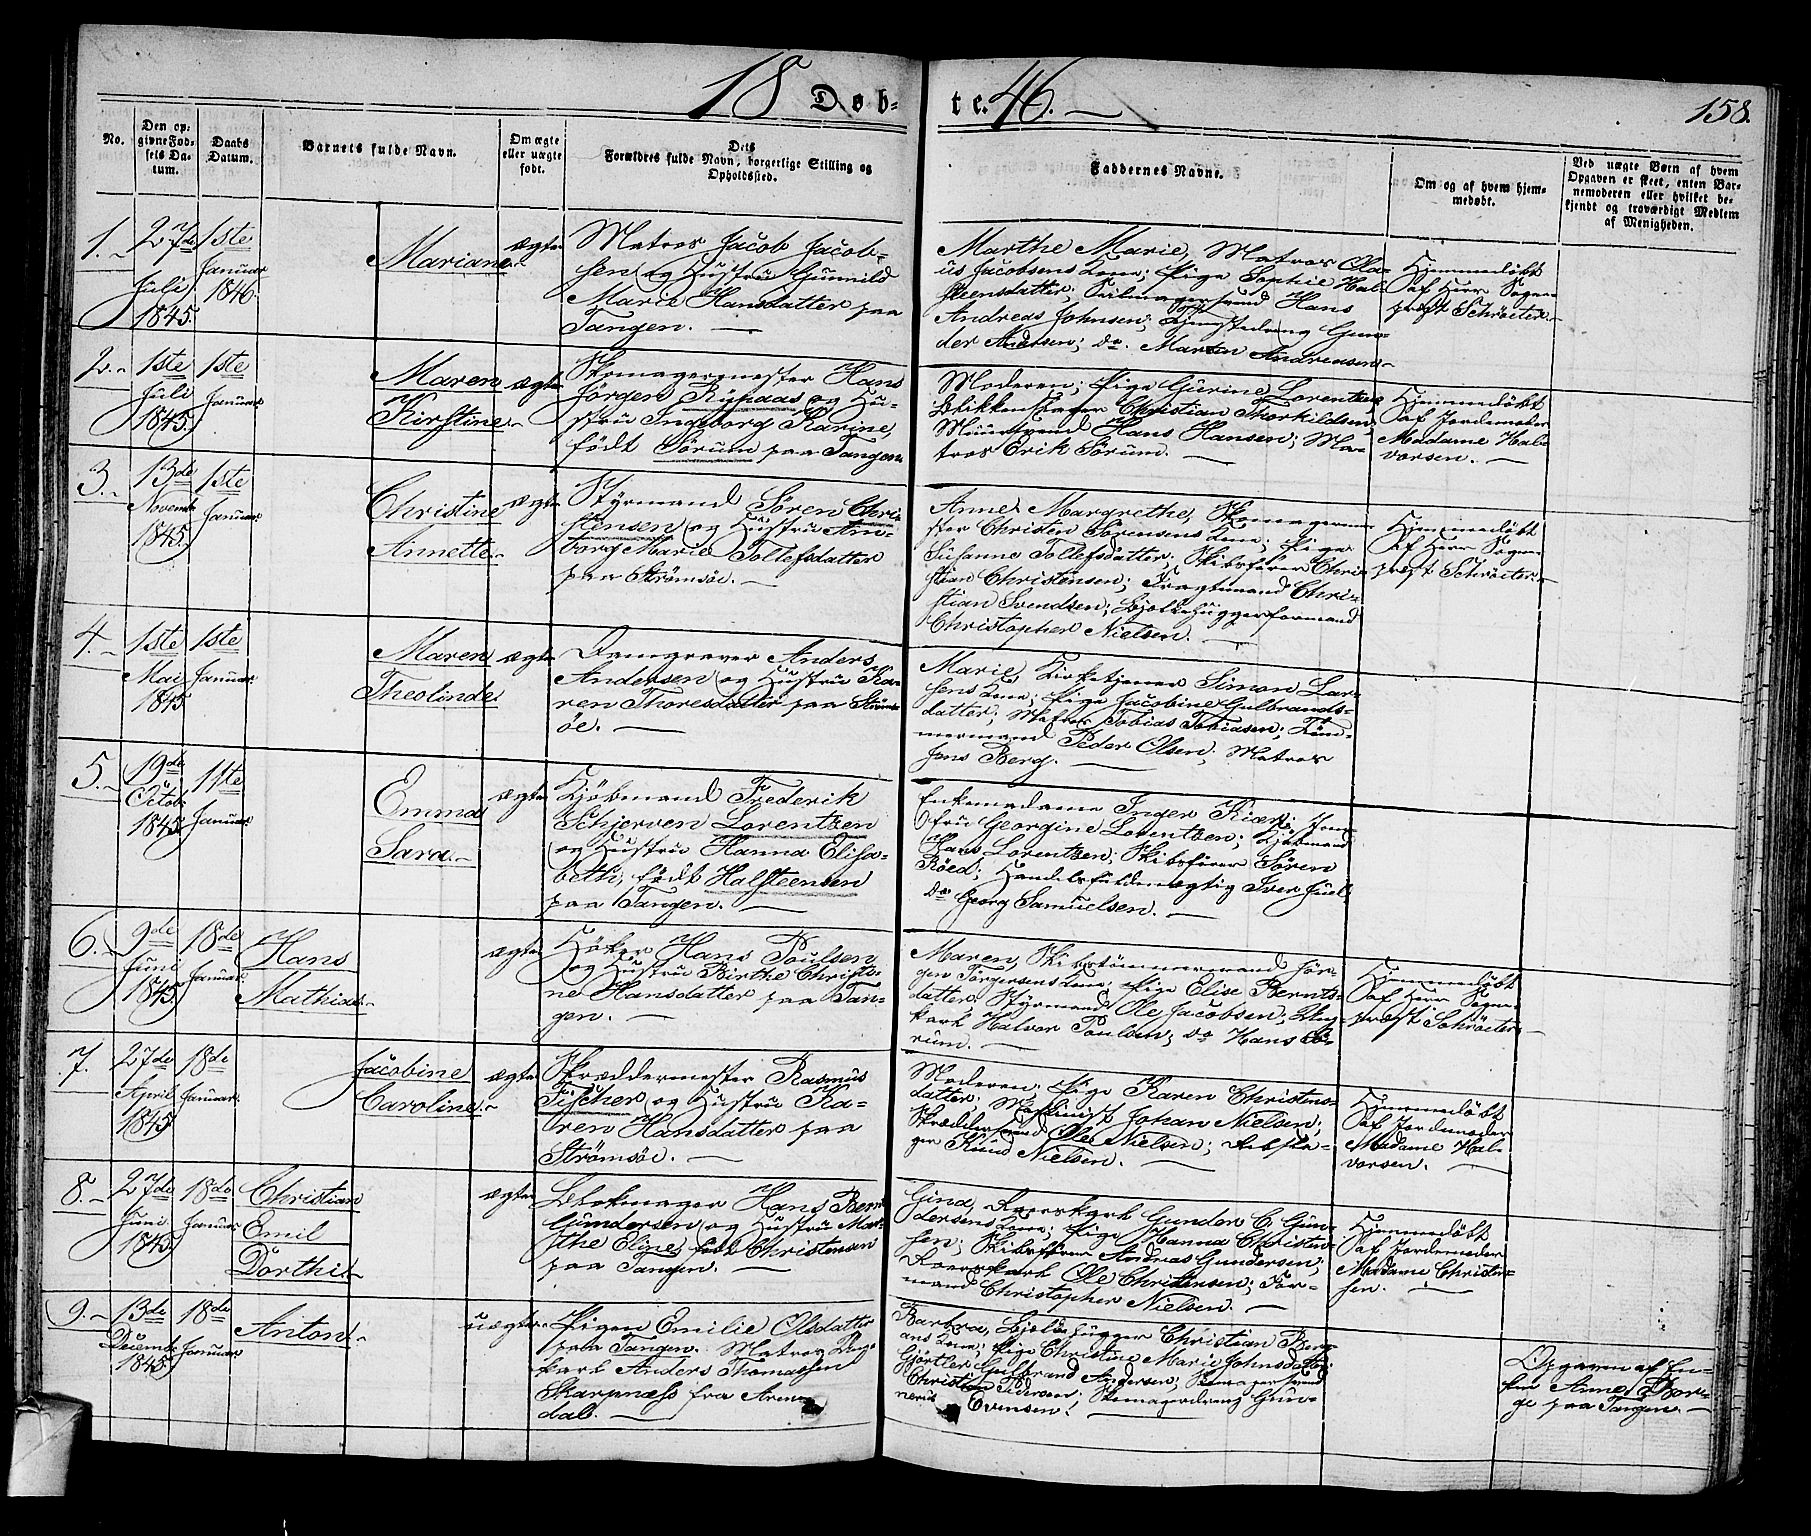 18 Døb-
te. 46.
158.
No.
Den op-
givne Fød-
sels Da-
tum.
Daabs
Datum.
Barnets fulde Navn.
Om ægte
eller uægte
født.
Dets
Forældres fulde Navn, borgerlige Stilling og
Opholdssted.
Faddernes Navne.
Om og af hvem hjem-
medøbt.
Ved uægte Børn af hvem
Opgaven er skeet, enten Bar-
nemoderen eller hvilket be-
kjendt og troværdigt Medlem
af Menigheden.
1.
27de
Juli
1845.
1ste
Januar
1846.
Mariane.
ægte
Matros Jacob Jacob-
sen og Hustru Gunnild
Marie Hansdatter paa
Tangen.
Marthe Marie, Matros Ola-
us Jacobsens Kone; Pige Sophie Hal-
steensdatter; Seilmagersvend Hans
Andreas Johnsen;
der Andersen; do. Andreasen
Hjemmedøbt
af Herr Sogne-
præst Schröeter.
2.
1ste
Juli
1845.
1ste
Januar.
Maren
Kirstine.
ægte
Skomagermester Hans
Jörgen Rynaas og Hu-
stru Ingeborg Karine,
født Sørum paa Tangen
Moderen; Pige Gurine Lorentsen
Blikkenslager Christian Thorkildsen
Muursvend Hans Hansen; Ma-
tros Erik Sørum.
Hjemmedøbt
af Jordemoder
Madame Hal-
vorsen.
3.
13de
Novemb.
1845.
1ste
Januar.
Christine
Annette.
ægte
Styrmand Søren Chri-
stensen og Hustru An-
borg Marie Tollefsdatter
paa Strömsöe.
Anne Margrethe, Skomagerme-
ster Christen Sørensens Kone; Pige
Susanne Tollefsdatter; Skibsfører Chri-
stian Christensen; Fragtemand Chri-
stian Svendsen; Bjelkehuggerformand
Christopher Nielsen.
Hjemmedøbt
af Herr Sogne-
præst Schröeter.
4.
1ste
Mai
1845
1ste
Januar.
Maren
Theolinde.
ægte
Damgraver Anders
Andersen og Hustru Ka-
ren Thoresdatter paa Ströms-
öe.
Marie, Kirketjener Simon Lar-
sens Kone; Pige Jacobine Gulbrands-
datter; Matros Tobias Tobiasen; Töm-
mermand Peder Olsen; Matros
Jens Berg.
5.
19de
Octob.
1845
1ste
Januar.
Emma
Sara.
ægte
Kjøbmand Frederik
Schjerven Lorentzen
og Hustru Hanna Elisa-
beth, født Halsteensen
paa Tangen.
Enkemadame Inger Kiær; Jom-
fru Georgine Lorentzen; Kjøbmand
Hans Lorentzen; Skibsfører Søren
Röed; Handelsfuldmægtig Iver Juel,
do Georg Samuelsen.
6.
9de
Juni
1845
18de
Januar.
Hans
Mathias.
ægte
Høker Hans Poulsen
og Hustru Birthe Christi-
ne Hansdatter paa Tan-
gen.
Maren, Skibstömmermand Jör-
gen Jörgensens Kone; Pige Elise Bernts-
datter; Styrmand Ole Jacobsen; Bug-
kark Halvor Poulsen; do Hans Sö-
rum.
Hjemmedøbt
af Herr Sogne-
præst Schröeter
7.
27de
April
1845
18de
Januar.
Jacobine
Caroline.
ægte
Skræddermester Rasmus
Fischer og Hustru Ka-
ren Hansdatter paa
Strömsöe.
Moderen; Pige Karen Christens-
datter; Maskinist Johan Nielsen;
Skræddersvend Ole Nielsen;
Knud Nielsen.
Hjemmedøbt
af Jordemoder
Madame Hal-
vorsen.
8.
27de
Juni
1845
18de
Januar
Christian
Emil
Dorthe.
ægte
Blokmager Hans Bernt
Gundersen og Hustru Mar-
the Eline født Christensen
paa Tangen.
Gina, Kark Gunder C. Gun-
dersens Kone; Pige Hanna Christen-
sen; Skibsfører Andreas Gundersen;
Ole Christensen; For-
mand Christopher Nielsen.
Hjemmedøbt
af Jordemoder
Madame Christen-
sen.
9.
13de
Decemb.
1845
18de
Januar.
Anton.
uægte
Pigen Emilie Olsdatter
paa Tangen. Matros Bug-
kark Anders Thomassen
Skarpnæss fra Aren-
dal.
Barbra, Bjelkehugger Christian Berg-
ans Kone; Pige Christine Marie Johnsdatter
Gjørtler Gulbrand Andersen; Skomagersvend
Christian Pedersen; Skomagerdreng Gun-
nerius Evensen.
Opgaven af En-
ken Anne Bor-
ge paa Tangen.